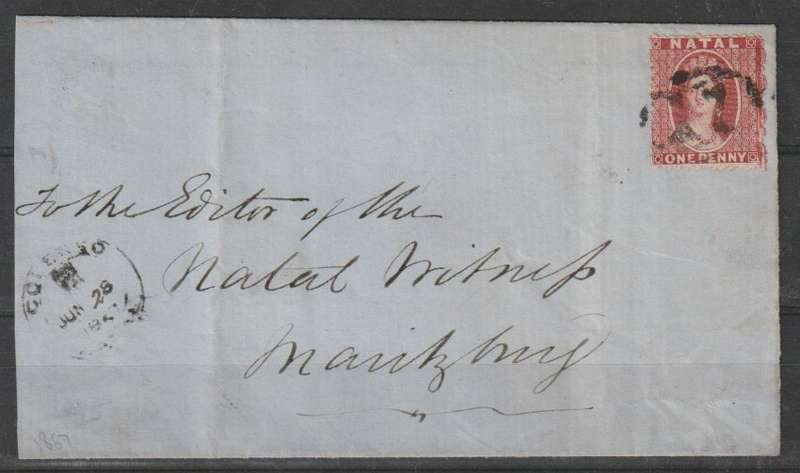 NATAL
ONE PENNY
To the Editor of the
Natal Witness
Maritzburg
COLENSO
JUN 28
1867